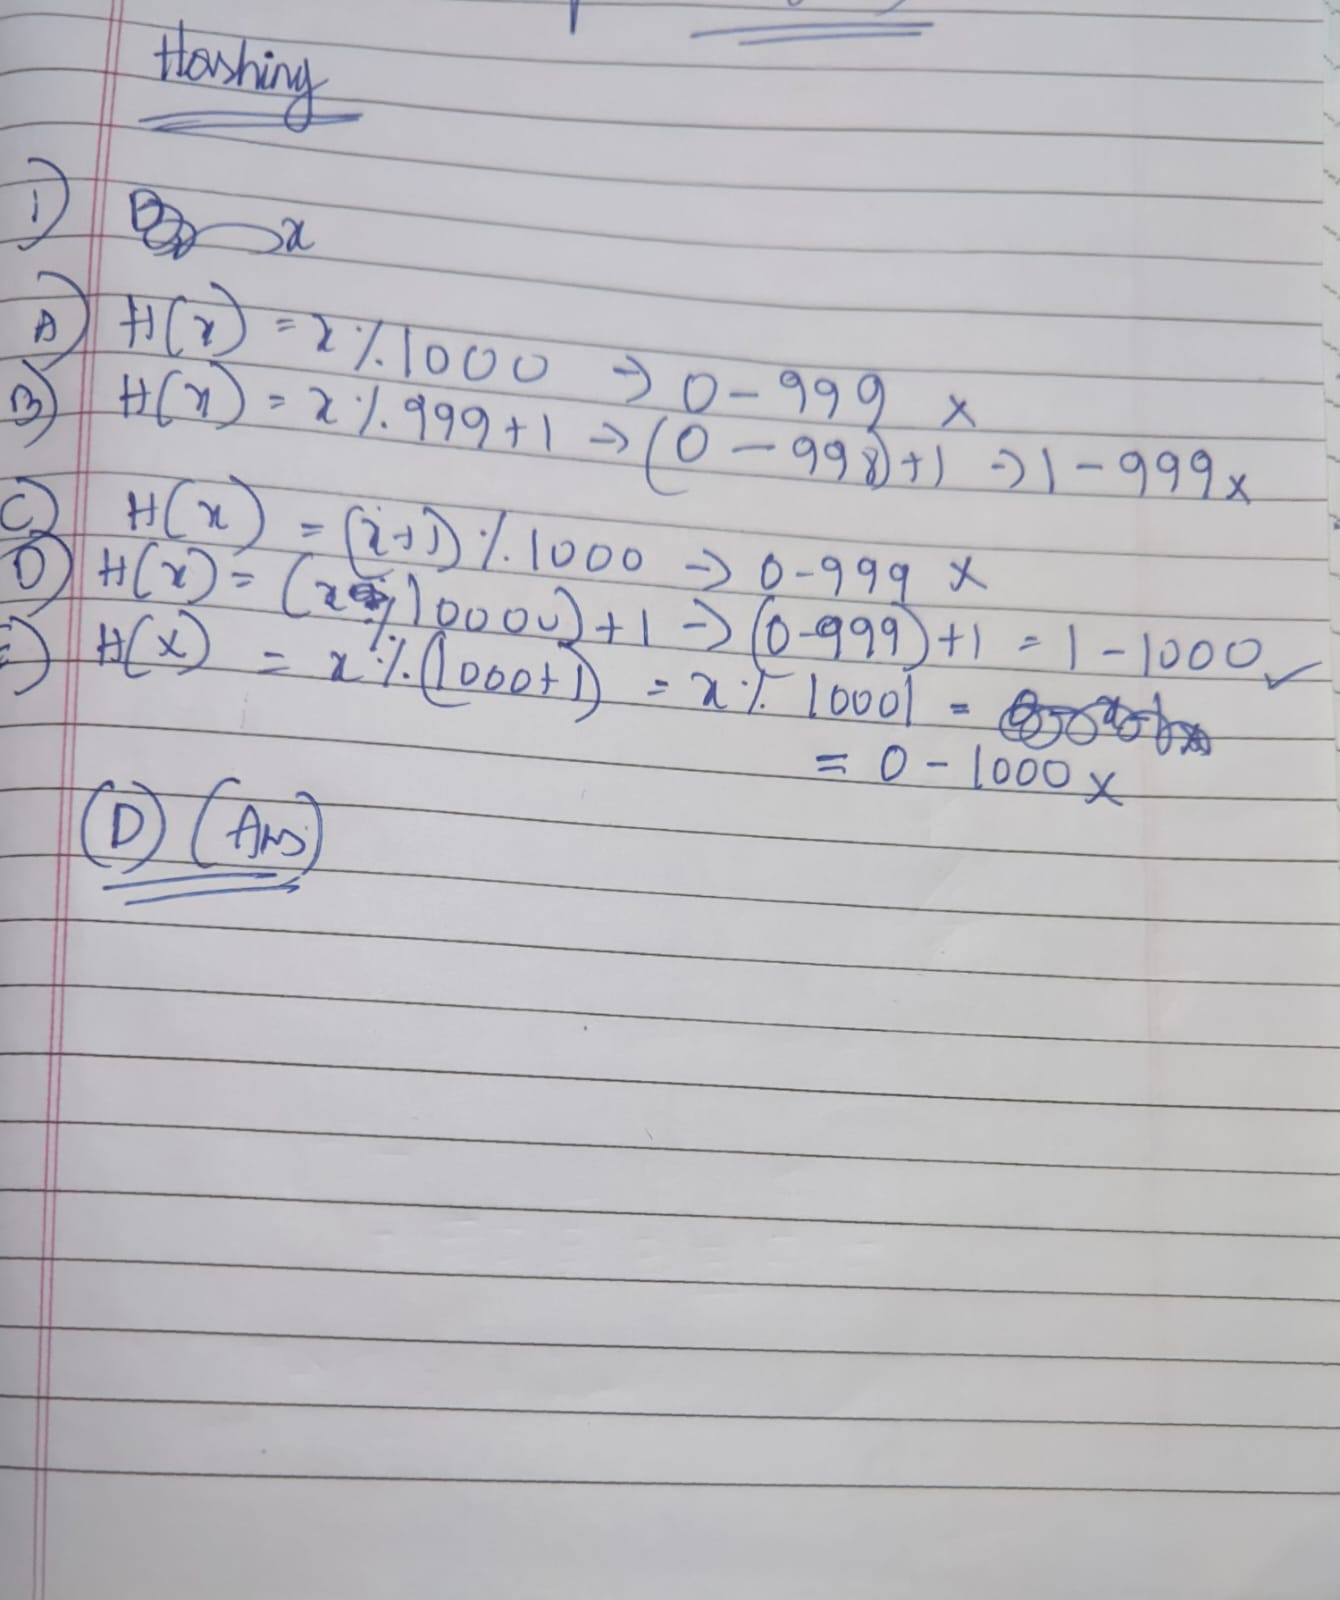 Hashing
1) x
A) H(x) = x % 1000 → 0 - 999 x
B) H(x) = x % 999 + 1 → (0 - 998) + 1 → 1 - 999 x
C) H(x) = (x+1) % 1000 → 0 - 999 x
D) H(x) = (x % 1000) + 1 → (0-999) + 1 = 1 - 1000 ✓
E) H(x) = x % (1000+1) = x % 1001 =
= 0 - 1000 x
(D) (Ans)